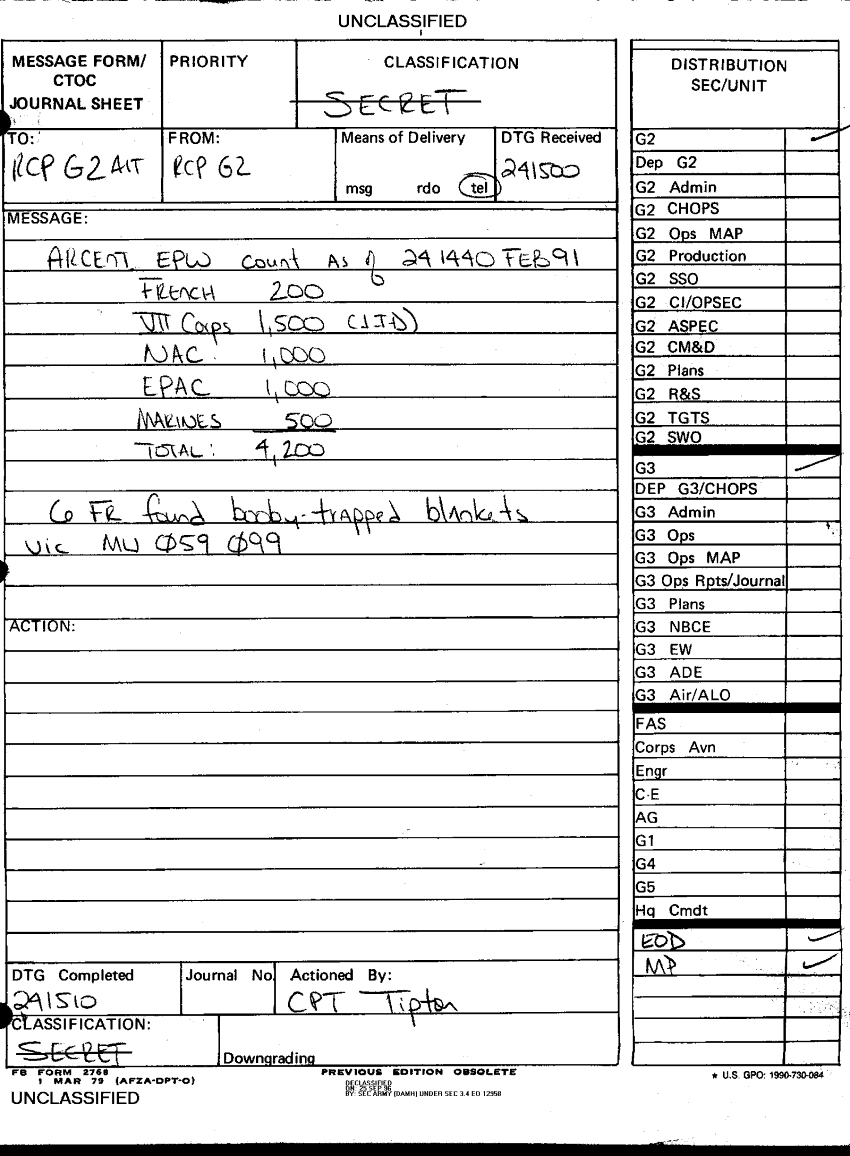 UNCLASSIFIED
MESSAGE FORM/
CTOC
JOURNAL SHEET
PRIORITY
CLASSIFICATION
SECRET
TO:
RCP G2 Alt
FROM:
RCP G2
Means of Delivery
msg rdo tel
DTG Received
241500
MESSAGE:
ARCENT EPW count As of 241440 FEB91
FRENCH 200
VII Corps 1,500 (1ID)
NAC: 1,000
EPAC 1,000
MARINES 500
TOTAL: 4,200
6 FR found booby-trapped blankets
vic MU 059 099
ACTION:
DTG Completed
241510
Journal No
Actioned By:
CPT Tipton
CLASSIFICATION:
SECRET
Downgrading
FB FORM 2768
1 MAR 79 (AFZA-DPT-O)
PREVIOUS EDITION OBSOLETE
UNCLASSIFIED
DECLASSIFIED
ON: 25 SEP 96
BY: SEC ARMY (DAMH) UNDER SEC 3.4 EO 12958
DISTRIBUTION
SEC/UNIT
G2
Dep G2
G2 Admin
G2 CHOPS
G2 Ops MAP
G2 Production
G2 SSO
G2 CI/OPSEC
G2 ASPEC
G2 CM&D
G2 Plans
G2 R&S
G2 TGTS
G2 SWO
G3
DEP G3/CHOPS
G3 Admin
G3 Ops
G3 Ops MAP
G3 Ops Rpts/Journal
G3 Plans
G3 NBCE
G3 EW
G3 ADE
G3 Air/ALO
FAS
Corps Avn
Engr
C-E
AG
G1
G4
G5
Hq Cmdt
EOD
MP
★ U.S. GPO: 1990-730-084